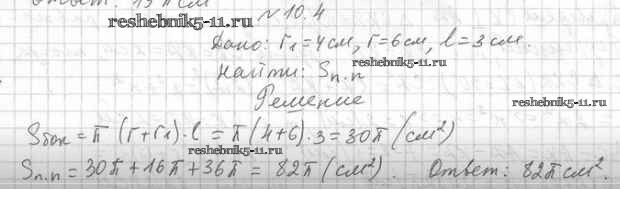 Ответ: 15π см
№10.4
reshebnik5-11.ru
Дано: r₁=4см, r=6см, l=3см.
reshebnik5-11.ru
Найти: Sп.п
Решение
reshebnik5-11.ru
Sбок=π(r+r₁)·l=π(4+6)·3=30π(см²)
reshebnik5-11.ru
Sп.п=30π+16π+36π=82π(см²). Ответ: 82π см².